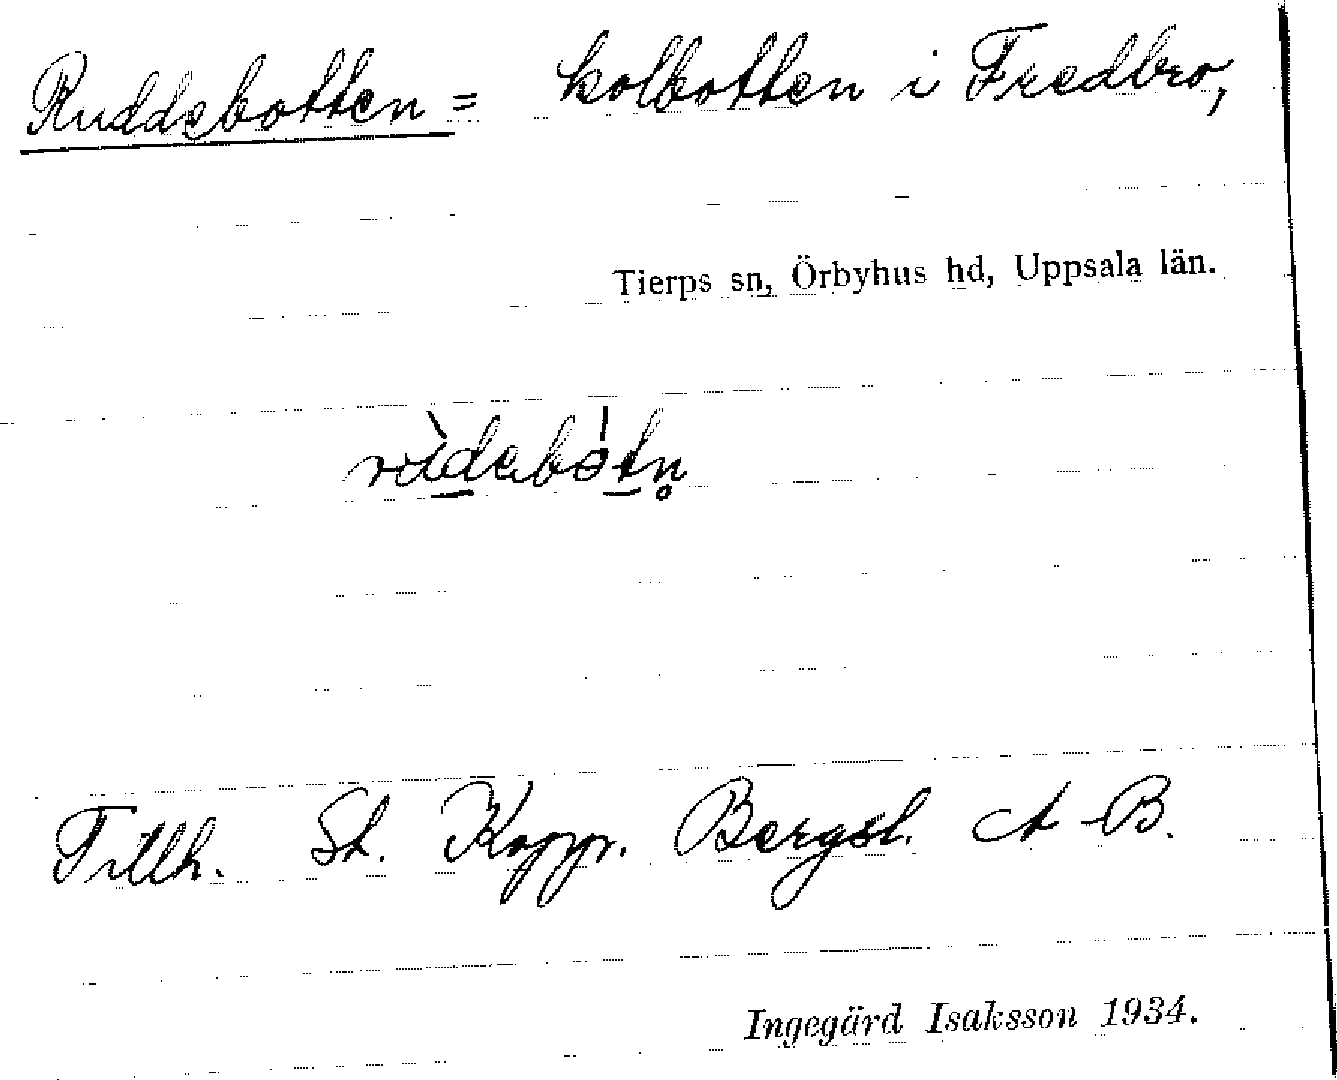 Ruddebotten = kolbotten i Fredbro,
Tierps sn, Örbyhus hd, Uppsala län.
rùdebòtn̥
Tillh. St. Koppr. Bergsl. A-B.
Ingegärd Isaksson 1934.